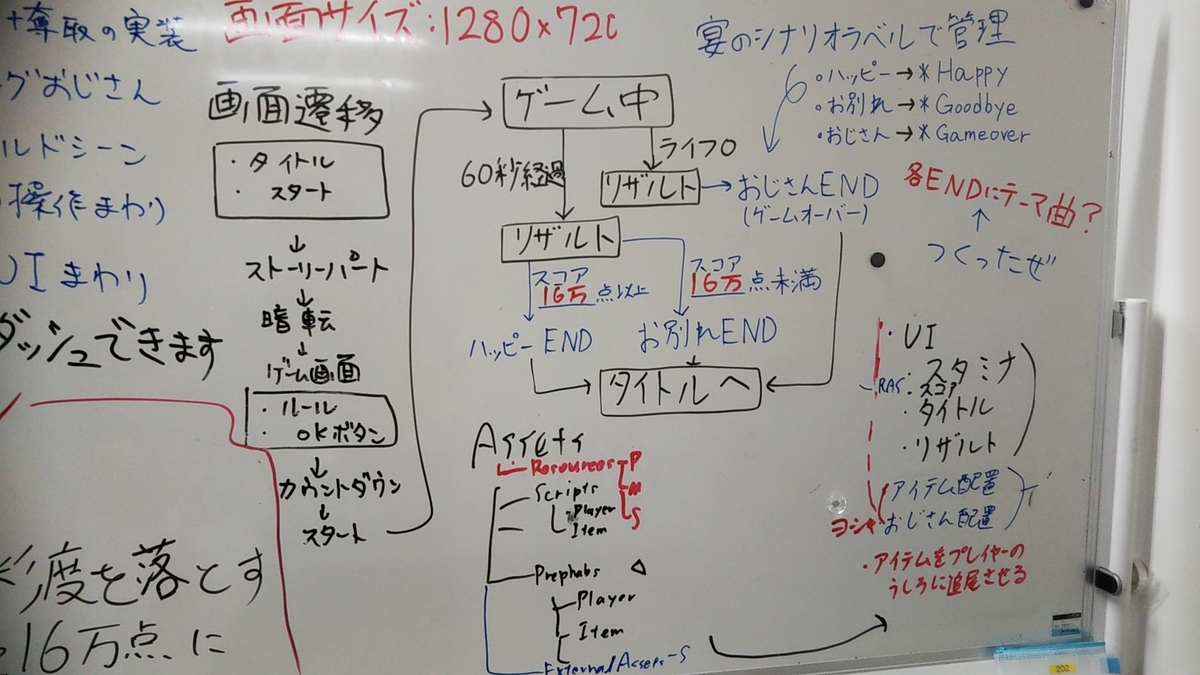 奪取の実装
グおじさん
ルドシーン
操作まわり
UIまわり
ダッシュできます
彩度を落とす
16万点に
画面サイズ:1280×720
画面遷移
・タイトル
・スタート
↓
ストーリーパート
↓
暗転
↓
ゲーム画面
・ルール
・OKボタン
↓
カウントダウン
↓
スタート
ゲーム中
60秒経過
ライフ0
リザルト→おじさんEND
(ゲームオーバー)
リザルト
スコア
16万点以上
スコア
16万点未満
ハッピーEND
お別れEND
タイトルへ
宴のシナリオラベルで管理
・ハッピー→*Happy
・お別れ→*Goodbye
・おじさん→*Gameover
各ENDにテーマ曲?
↑
つくったぜ
Assets
Resources
P
M
S
Scripts
Player
Item
Prephabs
Player
Item
ExternalAssets-S
・UI
・スタミナ
・スコア
・タイトル
・リザルト
アイテム配置
おじさん配置
・アイテムをプレイヤーの
うしろに追尾させる
202